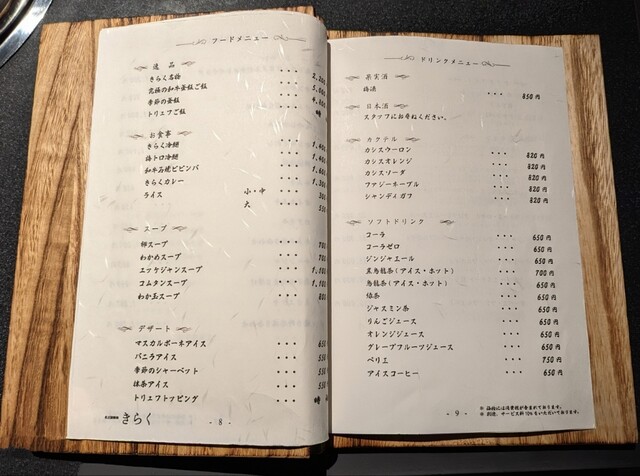 フードメニュー
逸品
きらく名物 ・・・
究極の和牛釜飯ご飯 ・・・
季節の釜飯 ・・・
トリュフご飯 ・・・ 時
お食事
きらく冷麺 ・・・
梅トロ冷麺 ・・・
和牛石焼ビビンバ ・・・
きらくカレー ・・・
ライス 小・中 ・・・
大 ・・・
スープ
卵スープ ・・・
わかめスープ ・・・
ユッケジャンスープ ・・・
コムタンスープ ・・・
わか玉スープ ・・・
デザート
マスカルポーネアイス ・・・
バニラアイス ・・・
季節のシャーベット ・・・
抹茶アイス ・・・
トリュフトッピング ・・・ 時
きらく
- 8 -
ドリンクメニュー
果実酒
梅酒 ・・・ 850円
日本酒
スタッフにお尋ねください。
カクテル
カシスウーロン ・・・ 820円
カシスオレンジ ・・・ 820円
カシスソーダ ・・・ 820円
ファジーネーブル ・・・ 820円
シャンディガフ ・・・ 820円
ソフトドリンク
コーラ ・・・ 650円
コーラゼロ ・・・ 650円
ジンジャエール ・・・ 650円
黒烏龍茶(アイス・ホット) ・・・ 700円
烏龍茶(アイス・ホット) ・・・ 650円
緑茶 ・・・ 650円
ジャスミン茶 ・・・ 650円
りんごジュース ・・・ 650円
オレンジジュース ・・・ 650円
グレープフルーツジュース ・・・ 650円
ペリエ ・・・ 750円
アイスコーヒー ・・・ 650円
- 9 -
※ 価格には消費税が含まれております。
※ 別途、サービス料10%をいただいております。